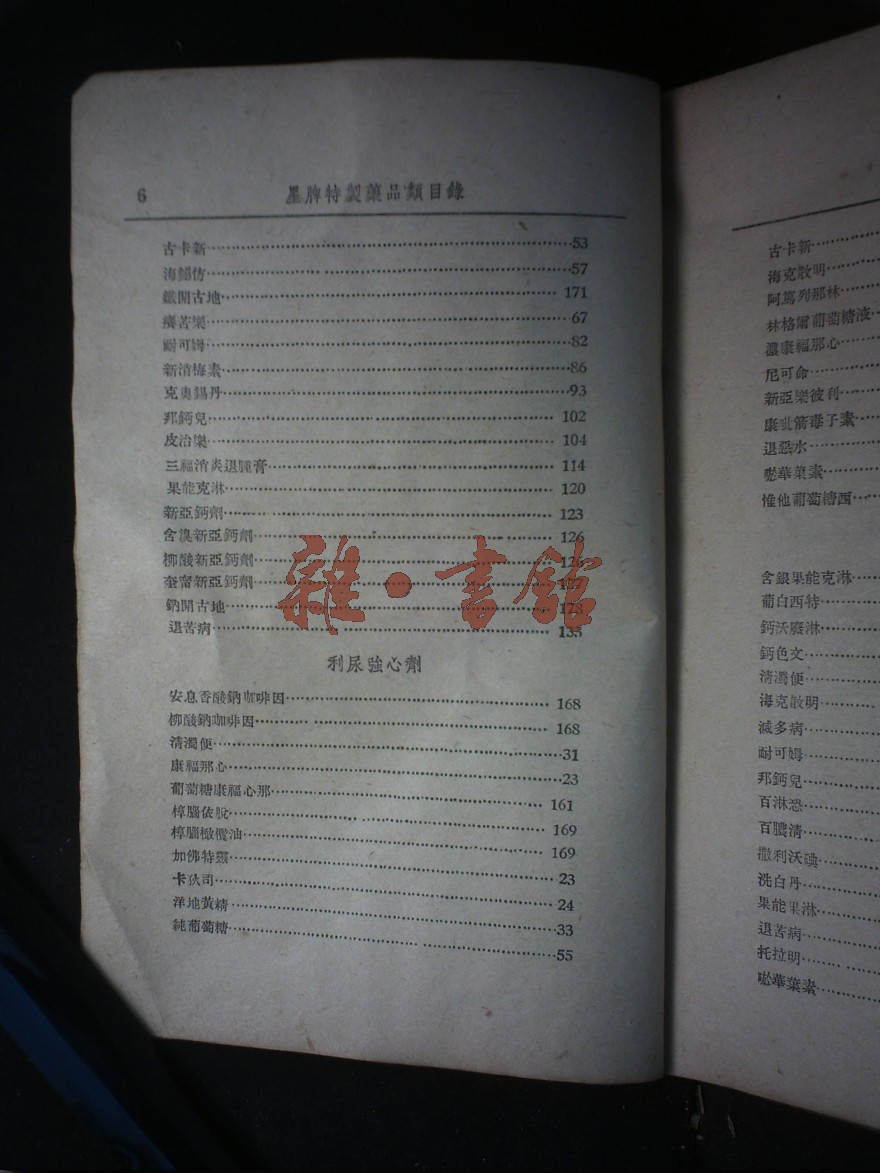 6 星牌特製藥品類目錄
古卡新……53
海締仿……57
鐵開古地……171
癢苦樂……67
耐可姆……82
新消梅素……86
克奥錫丹……93
邦鈣兒……102
皮治樂……104
三福消炎退腫膏……114
果能克淋……120
新亞鈣劑……123
含溴新亞鈣劑……126
柳酸新亞鈣劑……126
奎甯新亞鈣劑……127
鈉開古地……128
退苦病……135
雜·書館
利尿強心劑
安息香酸鈉咖啡因……168
柳酸鈉咖啡因……168
清濁便……31
康福那心……23
葡萄糖康福心那……161
樟腦依脫……169
樟腦橄欖油……169
加佛特靈……23
卡狄司……24
洋地黃精……33
純葡萄糖……55
古卡新……
海克散明……
阿篤列那林……
林格爾葡萄糖液……
濃康福那心……
尼可命……
新亞樂彼利……
康毗箭毒子素……
退惡水……
嗞華葉素……
惟他葡萄糖西……
含銀果能克淋……
葡白西特……
鈣沃廢淋……
鈣色文……
清濁便……
海克散明……
滅多病……
耐可姆……
邦鈣兒……
百淋恐……
百膿清……
撒利沃碘……
洗白丹……
果能果淋……
退苦病……
托拉明……
嗞華葉素……